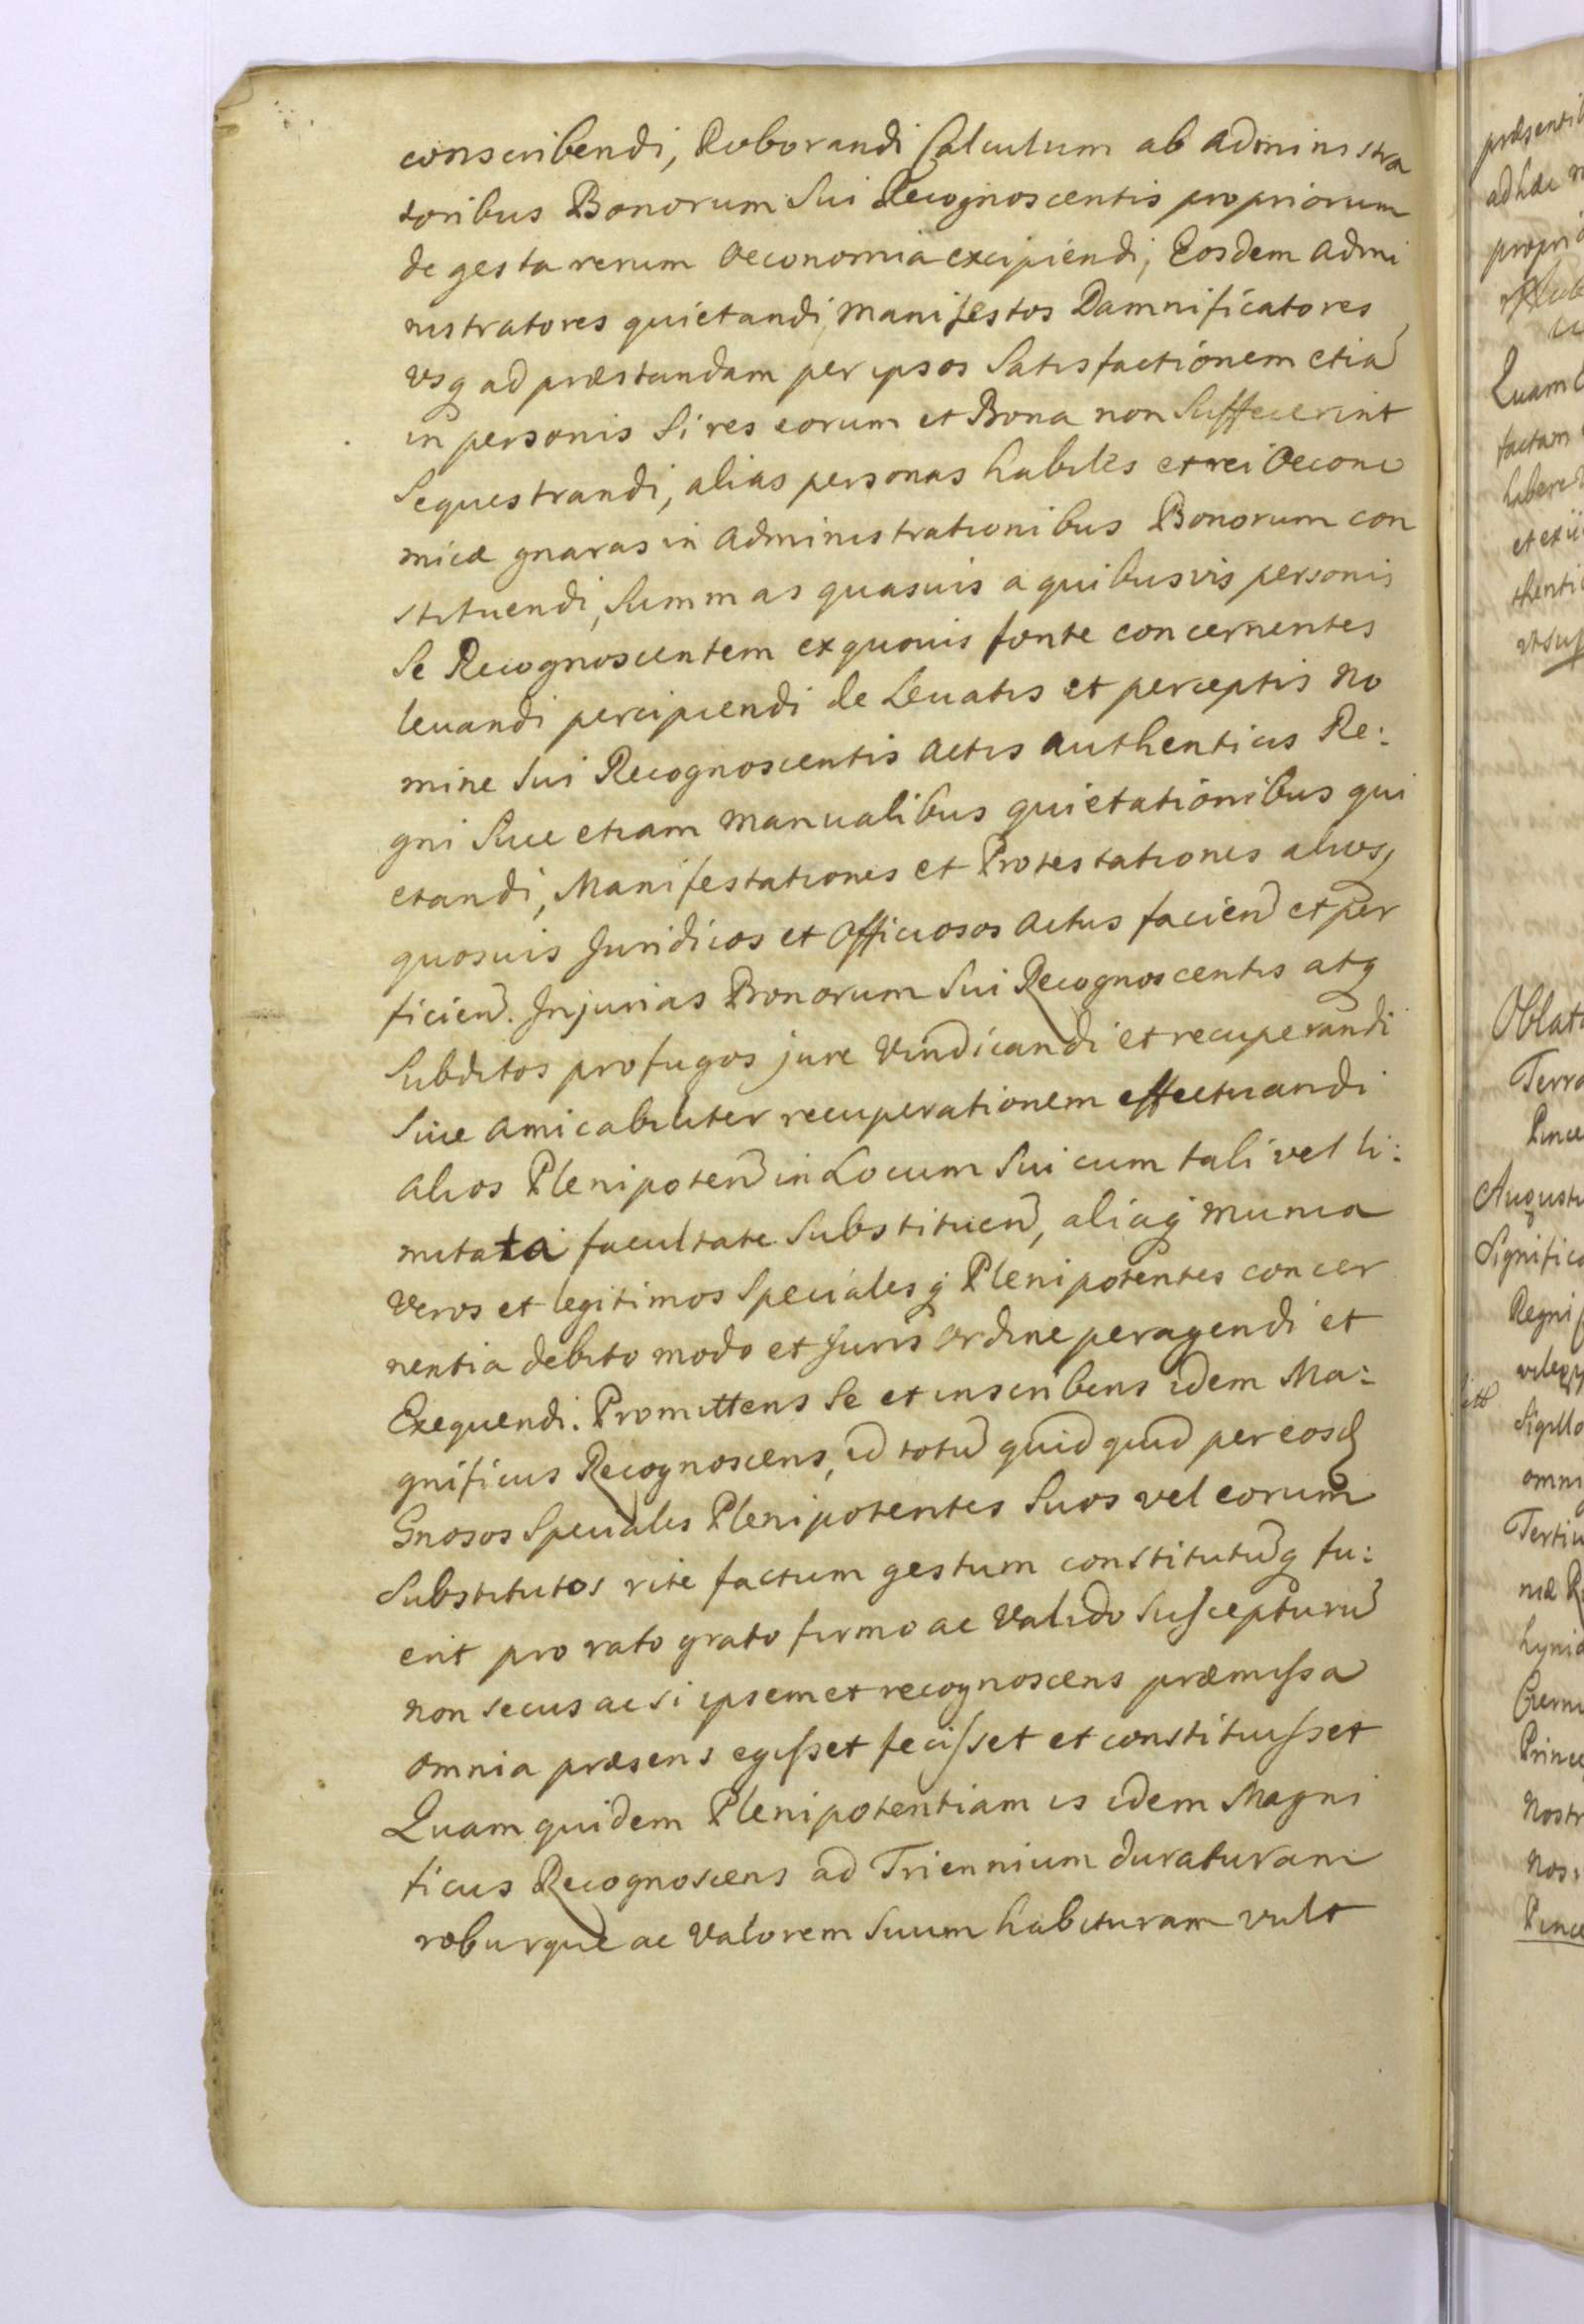 conscribendi, Roborandi Calculum ab administra
toribus Bonorum Sui Recognoscentis propriorum
de gesta rerum Oeconomia excipiendi, Eosdem admi
nistratores quietandi, manifestos Damnificatores
vsq ad præstandam per ipsos Satisfactionem etiã
in personis Si res eorum et Bona non Suffecerint
Sequestrandi, alias personas habiles et rei Oecono
micæ gnaras in administrationibus Bonorum con
stituendi, Summas quasuis a quibusvis personis
Se Recognoscentem ex quouis fonte concernentes
leuandi percipiendi de Leuatis et perceptis No
mine Sui Recognoscentis actis authenticis Re:
gni Siue etiam manualibus quietationibus qui
etandi, Manifestationes et Protestationes alios,
quosuis Juridicos et Officiosos actus facien̄ et per
ficien̄. Injurias Bonorum Sui Recognoscentis atq
Subditos profugos jure Vindicandi et recuperandi
Siue amicabiliter recuperationem effectuandi
alios Plenipoten̄ in Locum Sui cum tali vel li:
mitata facultate Substituen̄, aliaq munia
Veros et legitimos Speciales q Plenipotentes concer
nentia debito modo et Juris Ordine peragendi et
Exequendi. Promittens Se et inscribens idem Ma:
gnificus Recognoscens, id totũ quid quid per eosd
Gnosos Speciales Plenipotentes Suos vel eorum
Substitutos rite factum gestum constitutũq fu:
erit pro rato grato firmo ac Valido Suscepturũ
non secus ac si ipsemet recognoscens præmissa
omnia præsens egisset fecisset et constituisset
Quam quidem Plenipotentiam is idem Magni
ficus Recognoscens ad Triennium duraturam
roburque ac Valorem Suum habituram vult